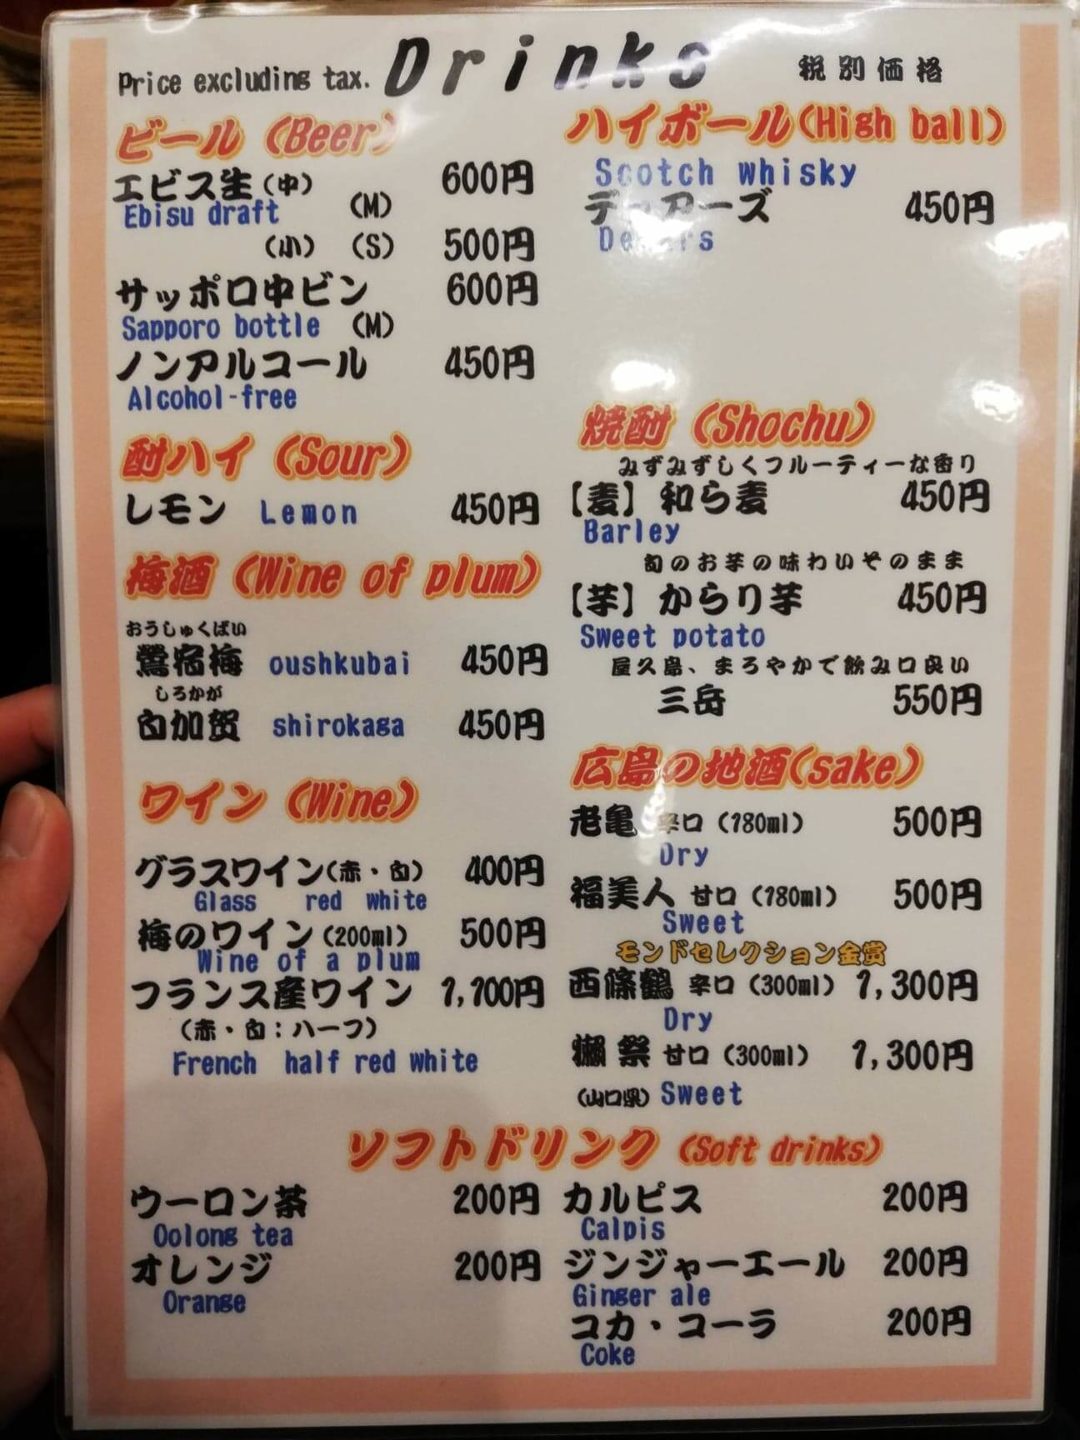 Price excluding tax. Drinks 税別価格
ビール(Beer)
エビス生(中) 600円
Ebisu draft (M)
(小) (S) 500円
サッポロ中ビン 600円
Sapporo bottle (M)
ノンアルコール 450円
Alcohol-free
酎ハイ(Sour)
レモン Lemon 450円
梅酒(Wine of plum)
おうしゅくばい
鶯宿梅 oushkubai 450円
しろかが
白加賀 shirokaga 450円
ワイン(Wine)
グラスワイン(赤・白) 400円
Glass red white
梅のワイン(200ml) 500円
Wine of a plum
フランス産ワイン 1,100円
(赤・白:ハーフ)
French half red white
ハイボール(High ball)
Scotch whisky
デュアーズ 450円
Dewars
焼酎(Shochu)
みずみずしくフルーティーな香り
【麦】和ら麦 450円
Barley
旬のお芋の味わいそのまま
【芋】からり芋 450円
Sweet potato
屋久島、まろやかで飲み口良い
三岳 550円
広島の地酒(sake)
老亀 辛口(180ml) 500円
Dry
福美人 甘口(180ml) 500円
Sweet
モンドセレクション金賞
西條鶴 辛口(300ml) 1,300円
Dry
獺祭 甘口(300ml) 1,300円
(山口県) Sweet
ソフトドリンク(Soft drinks)
ウーロン茶 200円
Oolong tea
オレンジ 200円
Orange
カルピス 200円
Calpis
ジンジャーエール 200円
Ginger ale
コカ・コーラ 200円
Coke